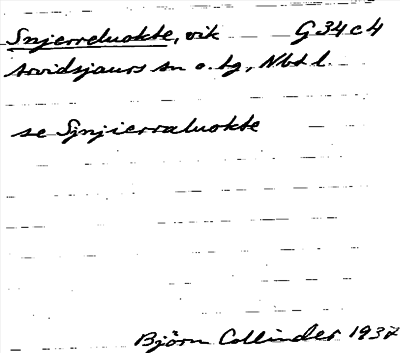 Snjerreluokte, vik G 34 c 4
Arvidsjaurs sn o. tg, Nbt l.
se Sjnjierraluokte
Björn Collinder 1937